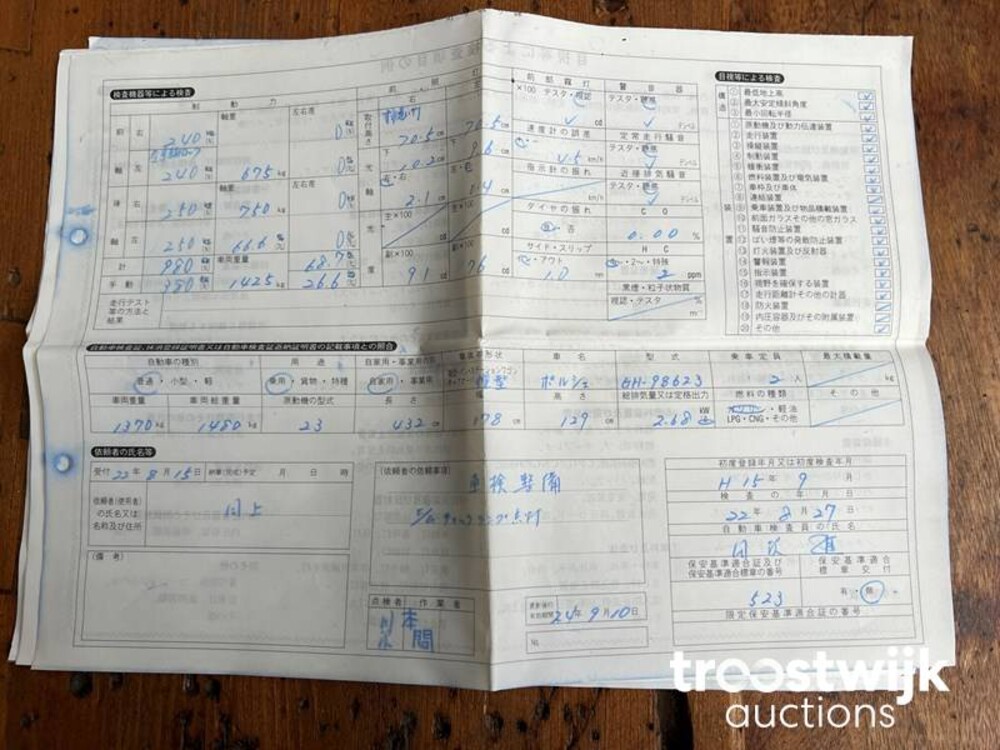 検査機器等による検査
制動力
軸重
左右差
前
右
240
0
240
675
0%
軸
左
後
右
250
750 kg
軸重
左右差
軸
左
250
66.6
計
980
車両重量
68.7
手動
380
1425 kg
26.6
走行テスト
等の方法と
結果
取付高さ
右
下
20.5 cm
10.2 cm
2.1 cm
主×100
主×100
副×100
副×100
91
76
前部霧灯
×100 テスタ・視認
cd
速度計の誤差
4.5 km/h
指示計の振れ
km/h
タイヤの振れ
否
サイド・スリップ
イン・アウト
1.0 mm
警音器
テスタ・聴感
デシベル
定常走行騒音
テスタ・聴感
デシベル
近接排気騒音
テスタ・聴感
デシベル
CO
0.00 %
HC
2 ppm
黒煙・粒子状物質
視認・テスタ
目視等による検査
構造
① 最低地上高
② 最大安定傾斜角度
③ 最小回転半径
装置
① 原動機及び動力伝達装置
② 走行装置
③ 操縦装置
④ 制動装置
⑤ 緩衝装置
⑥ 燃料装置及び電気装置
⑦ 車枠及び車体
⑧ 連結装置
⑨ 乗車装置及び物品積載装置
⑩ 前面ガラスその他の窓ガラス
⑪ 騒音防止装置
⑫ ばい煙等の発散防止装置
⑬ 灯火装置及び反射器
⑭ 警報装置
⑮ 指示装置
⑯ 視野を確保する装置
⑰ 走行距離計その他の計器
⑱ 防火装置
⑲ 内圧容器及びその附属装置
⑳ その他
自動車検査証、抹消登録証明書又は自動車検査証返納証明書の記載事項との照合
自動車の種別
用途
自家用・事業用の別
車名
型式
乗車定員
最大積載量
普通・小型・軽
乗用・貨物・特種
自家用・事業用
ポルシェ
GH-98623
2人
kg
車両重量
車両総重量
原動機の型式
長さ
幅
高さ
総排気量又は定格出力
燃料の種類
その他
1370 kg
1480 kg
23
432 cm
178 cm
129 cm
2.68
kW
・軽油
LPG・CNG・その他
依頼者の氏名等
受付 22年8月15日
納車(完成)予定 月 日 時
依頼者(使用者)
の氏名又は
名称及び住所
同上
(備考)
(依頼者の依頼事項)
車検整備
点検者
作業者
本間
有効期間
24年9月10日
No.
初度登録年月又は初度検査年月
H 15年 9月
検査の年月日
22年 8月 27日
自動車検査員の氏名
保安基準適合証及び
保安基準適合標章の番号
523
保安基準適合
標章交付
有・無
限定保安基準適合証の番号
troostwijk
auctions